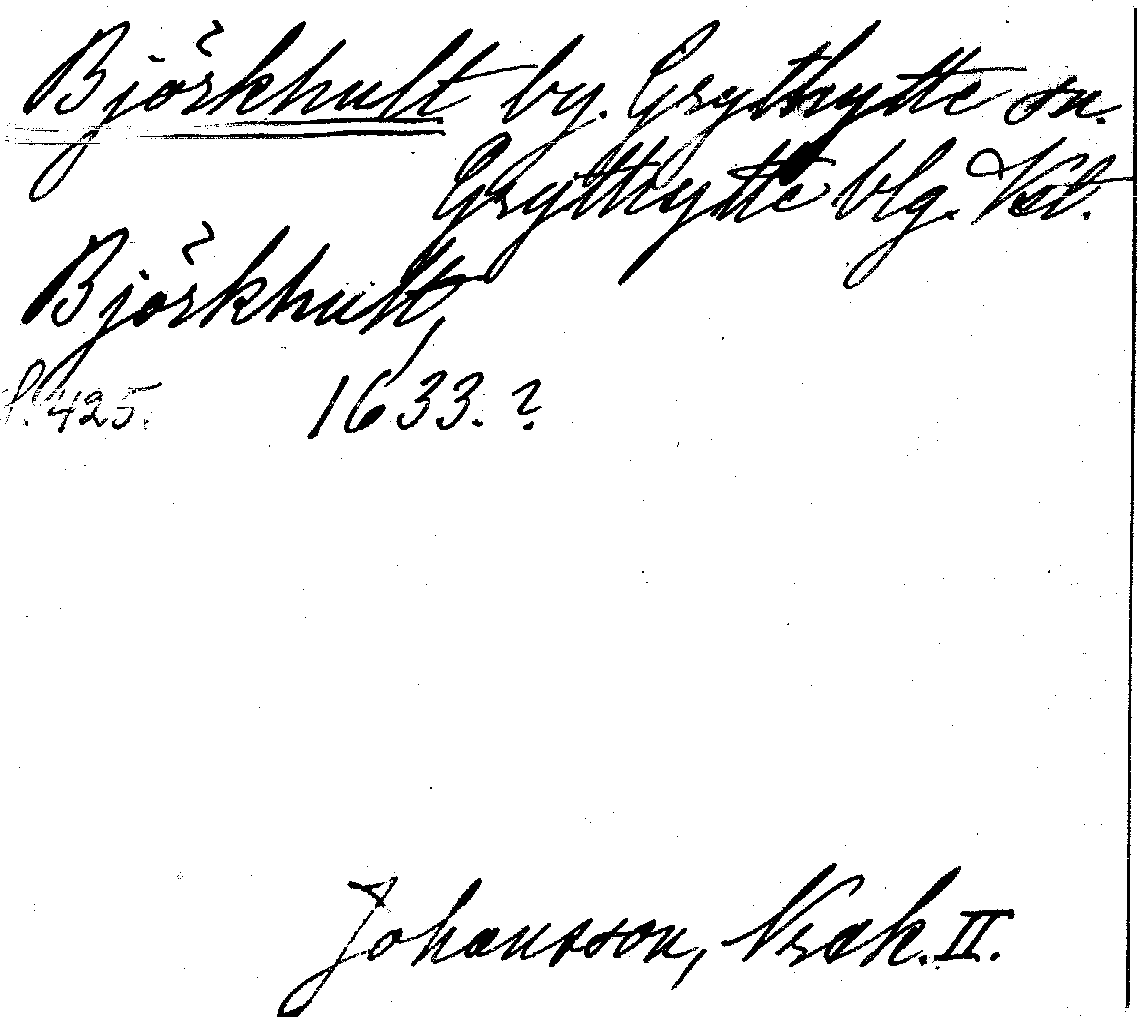 Björkhult by. Grythytte sn.
Grythytte blg. Vstl.
Björkhult,
s. 425. 1633. ?
Johansson, Norak. II.